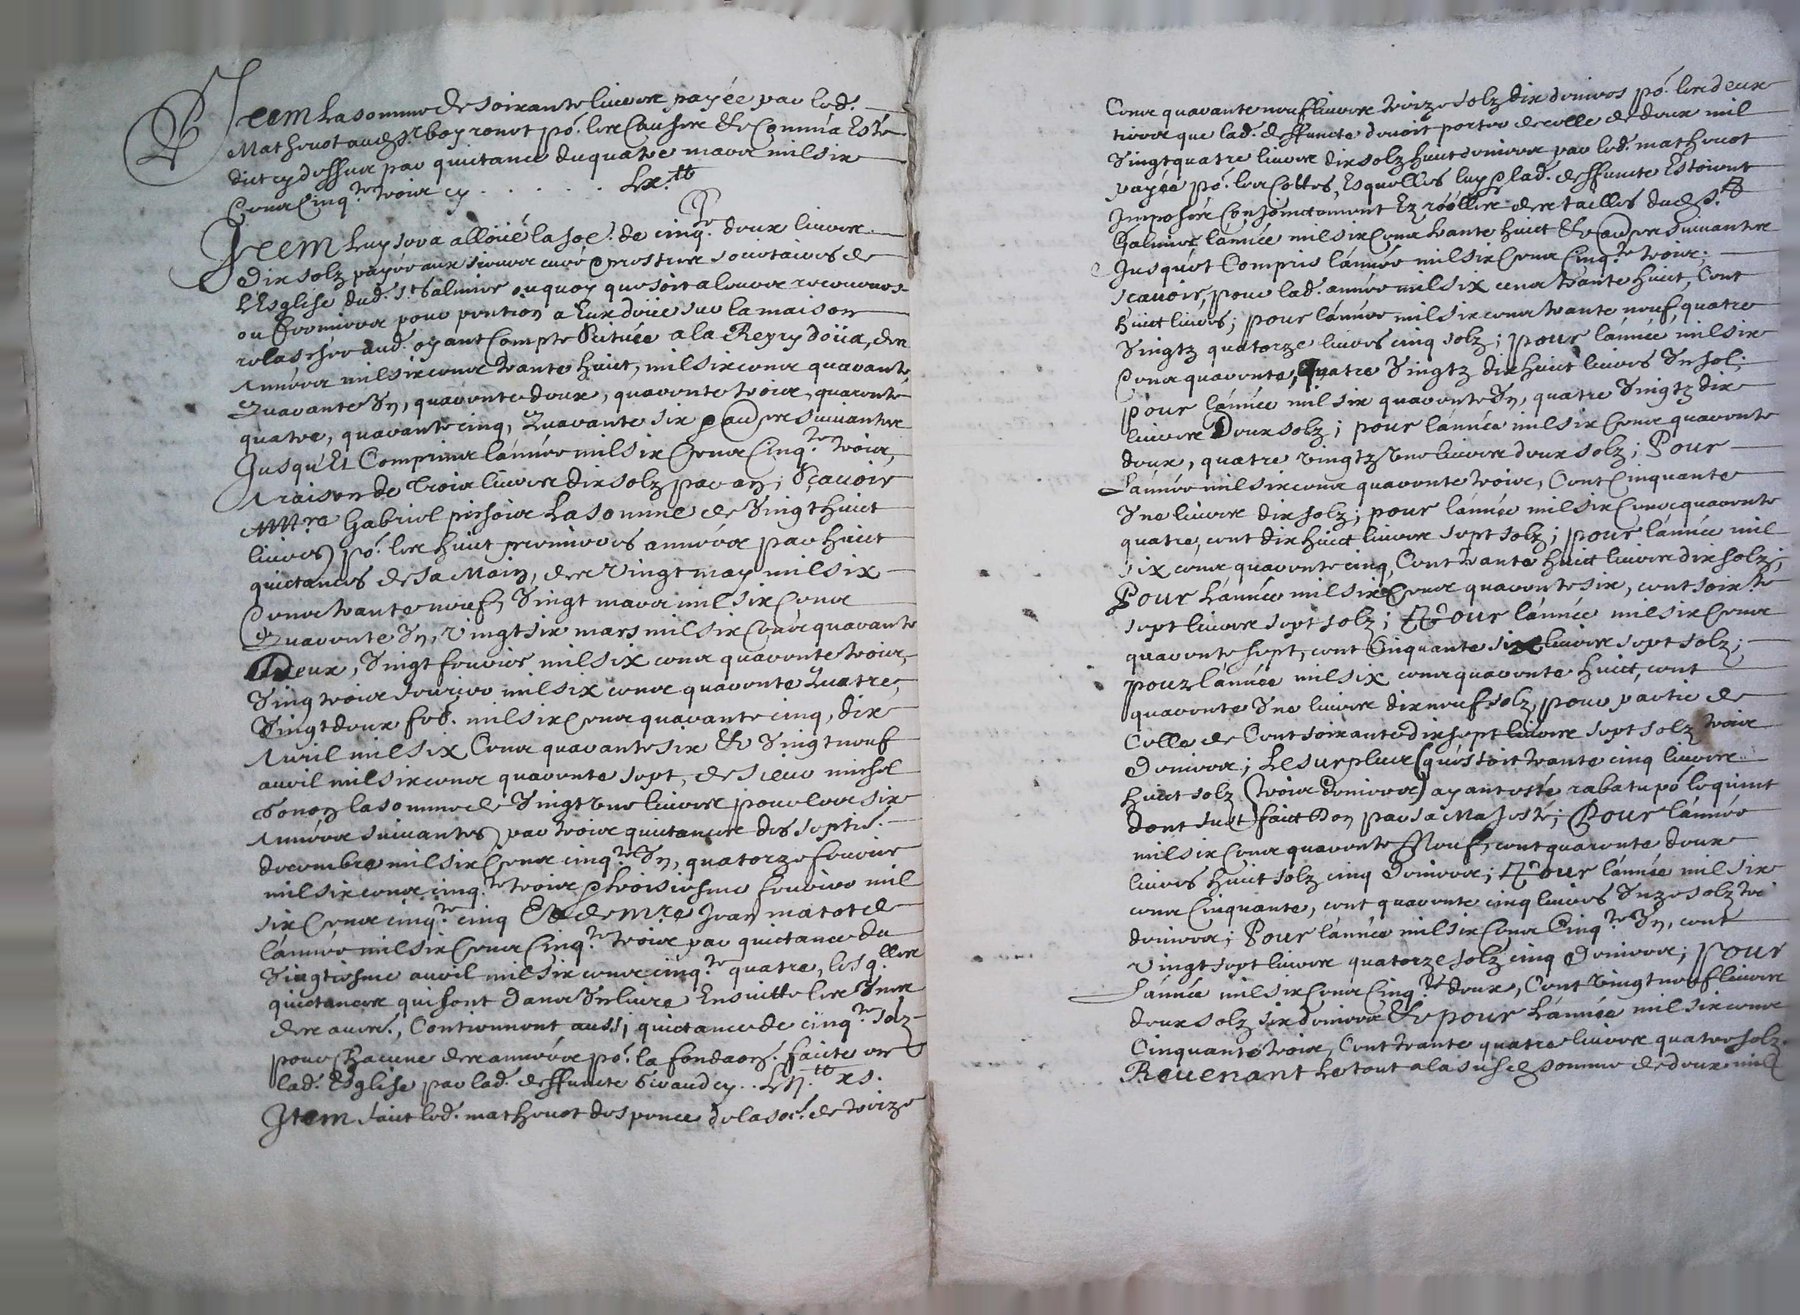 Item La somme de soixante livres payée par led.
Mathevot aud. Sr boyronet po.r les causes & comm'a esté
dict cy dessus par quictance du quatre mars mil six
cens cinq.te trois cy . . . . . . Lx.tt
Item Luy sera alloué la so.e de cinq.te deux livres
dix solz payée aux sieurs curé & prestres societaires de
L'Esglise dud. St Galmier ou quoy que soit a leurs receveurs
ou fermiers pour pention a Eux deüe sur la maison
relaschée aud. oyant compte scituée a la Reyrydoüa, des
Années mil six cens trante huict, mil six cens quarante
Quarante Un, quarante deux, quarante trois, quarante
quatre, quarante cinq, Quarante six & autres suivantes
Jusqu'Et Comprins l'année mil six Cens Cinq.te trois,
A raison de Trois livres dix solz par an; Sçavoir
A M.re Gabriel La somme de Vingt huict
livres po.r les huict premieres années par huict
quictances de sa Main, des Vingt may mil six
Cens trante neuf, Vingt mars mil six Cens
Quarante Un, Vingt six mars mil six Cens quarante
Deux, Vingt fevrier mil six cens quarante trois,
Vingt trois fevrier mil six cens quarante Quatre,
Vingt deux feb. mil six Cens quarante cinq, dix
Avril mil six Cens quarante six & Vingt neuf
avril mil six cens quarante sept, & Sieur michel
la somme de Vingt une livres pour les six
Années suivantes par trois quictances des sept.e
decembre mil six Cens cinq.te Un, quatorze fevrier
mil six cens cinq.te trois & troisiesme fevrier mil
six Cens cinq.te cinq Et de m.re Jean matot de
l'année mil six Cens Cinq.te trois par quictance du
Vingtiesme avril mil six cens cinq.te quatre, lesq.lles
quictances qui sont dans Un livre Ensuitte les Unes
des autres, Contiennent aussi quictance de cinq.te solz
pour Chacune des années po.r la fondaon. faicte en
lad. Esglise par lad. deffuncte Giraud cy . . Lij.tt xs.
Item faict led. mathevot despence de la so.e de treize
Cens quarante neuf livres treize solz dix deniers po.r les deux
tiers que lad. deffuncte devoit porter de celle de deux mil
Vingt quatre livres dix solz huict deniers par led. mathevot
payée po.r les Cottes, Esquelles luy & lad. deffuncte Estoient
Imposés Conjoinctement Ez roolles des tailles dud. St
Galmier l'année mil six Cens trante huict & autres suivantes
Jusqu'et Compris l'année mil six Cens Cinq.te trois;
scavoir, pour lad. année mil six cens trante huict, Cent
huict livres; pour l'année mil six cens trante neuf, quatre
Vingtz quatorze livres cinq solz; pour l'année mil six
Cens quarante, quatre Vingtz dix huict livres Un sol;
pour l'année mil six quarante Un, quatre Vingtz dix
livres Deux solz; pour l'année mil six Cens quarante
deux, quatre vingtz Une livres deux solz; Pour
L'année mil six cens quarante trois, Cent Cinquante
Une livres dix solz; pour l'année mil six Cens quarante
quatre, cent dix huict livres sept solz; pour l'année mil
six cens quarante cinq, Cent trante huict livres dix solz;
Pour L'année mil six Cens quarante six, cent soix.te
sept livres sept solz; Pour l'année mil six Cens
quarante sept, cent Cinquante six livres sept solz;
pour l'année mil six cens quarante huict, cent
quarante Une livres dix neuf solz, pour partie de
Celle de Cent soixante dix sept livres sept solz trois
deniers; Le surplus (qu'estoit trante cinq livres
huict solz trois deniers) ayant esté rabatu po.r le quint
dont fust faict Don par sa Majesté; Pour l'année
mil six Cens quarante Neuf, cent quarante deux
livres huict solz cinq deniers; Pour l'année mil six
cens Cinquante, cent quarante cinq livres Unze solz
deniers; Pour l'année mil six Cens Cinq.te Un, cent
Vingt sept livres quatorze solz cinq deniers; Pour
L'année mil six Cens Cinq.te deux, Cent Vingt neuf livres
deux solz six deniers & pour L'année mil six cens
Cinquante trois, Cent trante quatre livres quatre solz.
Revenant Le tout a la susd. somme de deux mil